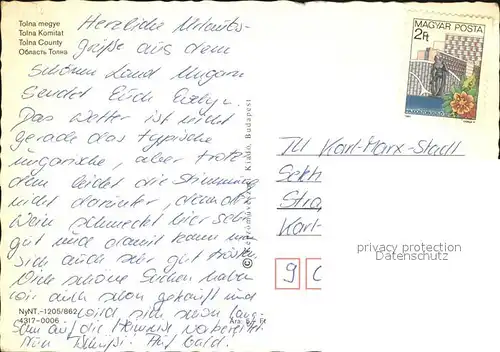 Tolna megye
Tolna Komitat
Tolna County
Область Толна
Herzliche Urlaubs-
grüße aus dem
schönen Land Ungarn
sendet Euch Evelyn.
Das Wetter ist nicht
gerade das typische
ungarische, aber trotz-
dem leidet die Stimmung
nicht darunter, denn der
Wein schmeckt hier sehr
gut und damit kann man
sich auch sehr gut trösten.
Viele schöne Sachen haben
wir auch schon gekauft und
NyNT.-1205/862
wird sich schon lang-
4317-0006
Ára: 5,- Ft
sam auf die Heimreise vorbereitet.
Auf bald.
© Képzőművészeti Kiadó, Budapest
MAGYAR POSTA
2Ft
TU Karl-Marx-Stadt
Sekt
Stra
Karl-
privacy protection
Datenschutz
9